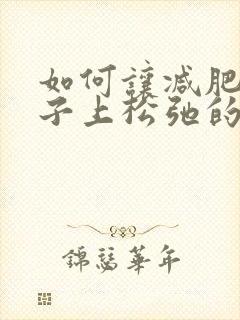 如何讓減肥
子上松弛的
錦瑟華年